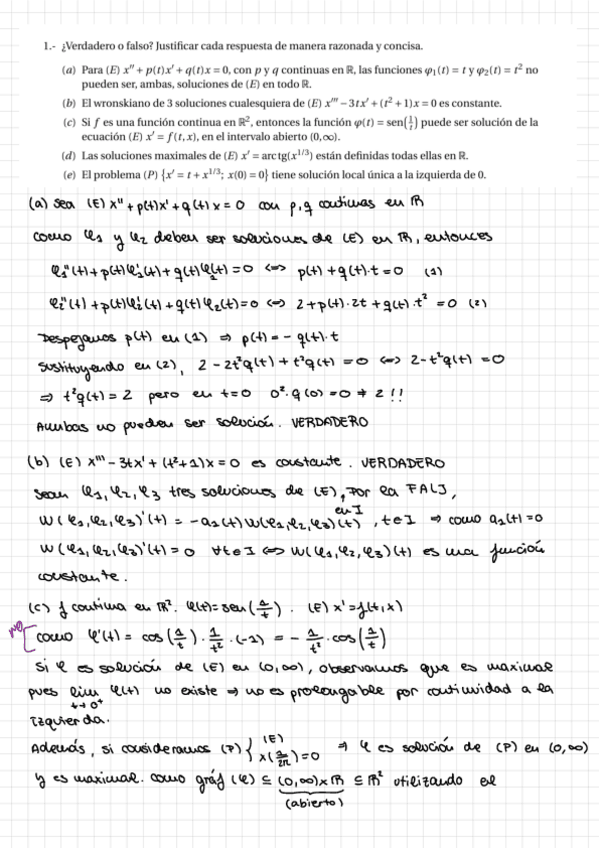 1.- ¿Verdadero o falso? Justificar cada respuesta de manera razonada y concisa.
(a) Para (E) x″ + p(t)x′ + q(t)x = 0, con p y q continuas en ℝ, las funciones φ₁(t) = t y φ₂(t) = t² no
pueden ser, ambas, soluciones de (E) en todo ℝ.
(b) El wronskiano de 3 soluciones cualesquiera de (E) x‴ − 3tx′ + (t² + 1)x = 0 es constante.
(c) Si f es una función continua en ℝ², entonces la función φ(t) = sen(1/t) puede ser solución de la
ecuación (E) x′ = f(t, x), en el intervalo abierto (0,∞).
(d) Las soluciones maximales de (E) x′ = arctg(x^{1/3}) están definidas todas ellas en ℝ.
(e) El problema (P) {x′ = t + x^{1/3}; x(0) = 0} tiene solución local única a la izquierda de 0.
(a) Sea (E) x″ + p(t)x′ + q(t)x = 0 con p, q continuas en ℝ
Como φ₁ y φ₂ deben ser soluciones de (E) en ℝ, entonces
φ₁″(t) + p(t)φ₁′(t) + q(t)φ₁(t) = 0 <=> p(t) + q(t)·t = 0 (1)
φ₂″(t) + p(t)φ₂′(t) + q(t)φ₂(t) = 0 <=> 2 + p(t)·2t + q(t)·t² = 0 (2)
Despejamos p(t) en (1) => p(t) = − q(t)·t
Sustituyendo en (2), 2 − 2t²q(t) + t²q(t) = 0 <=> 2 − t²q(t) = 0
=> t²q(t) = 2 pero en t=0 0²·q(0) = 0 ≠ 2 !!
Ambas no pueden ser solución. VERDADERO
(b) (E) x‴ − 3tx′ + (t²+1)x = 0 es constante. VERDADERO
Sean φ₁, φ₂, φ₃ tres soluciones de (E), Por la FALJ,
en I
W(φ₁,φ₂,φ₃)′(t) = −a₁(t)W(φ₁,φ₂,φ₃)(t), t∈I => como a₁(t)=0
W(φ₁,φ₂,φ₃)′(t) = 0 ∀t∈I <=> W(φ₁,φ₂,φ₃)(t) es una función
constante.
(c) f continua en ℝ². φ(t) = sen(1/t). (E) x′ = f(t,x)
no [Como φ′(t) = cos(1/t) · 1/t² · (−1) = − 1/t² · cos(1/t)
Si φ es solución de (E) en (0,∞), observamos que es maximal
pues lim φ(t) no existe => no es prolongable por continuidad a la
t→0⁺
izquierda.
Además, si consideramos (P) { (E) x(1/2π) = 0 => φ es solución de (P) en (0,∞)
y es maximal. Como gráf(φ) ⊆ (0,∞)×ℝ ⊆ ℝ² utilizando el
(abierto)